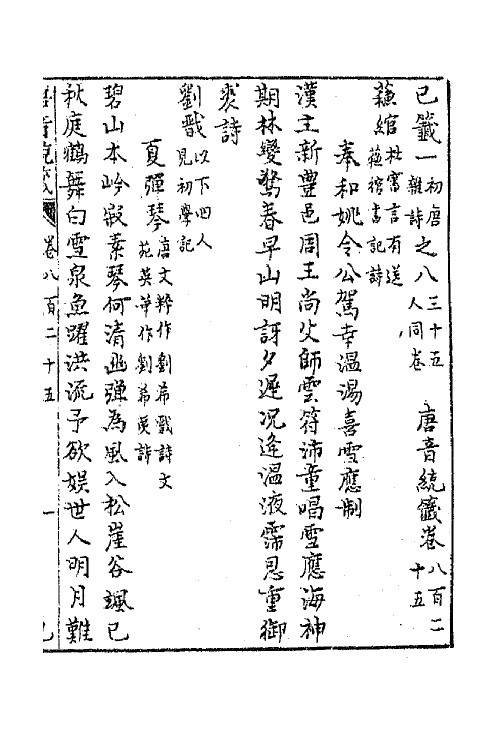 己籤一初唐雜詩之八三十五人同卷 唐音統籤卷八百二十五
蘇綰杜審言有送蘇綰書記詩
奉和姚令公駕幸溫湯喜雪應制
漢主新豐邑周王尚父師雲符沛童唱雪應海神
期林變驚春早山明訝夕遲况逢溫液霈恩重御
裘詩
劉戩以下四人見初學記
夏彈琴唐文粹作劉希戩詩文苑英華作劉希夷詩
碧山本岑寂素琴何清幽彈為風入松崖谷颯已
秋庭鶴舞白雪泉魚躍洪流予欲娛世人明月難
卷八百二十五 一 己